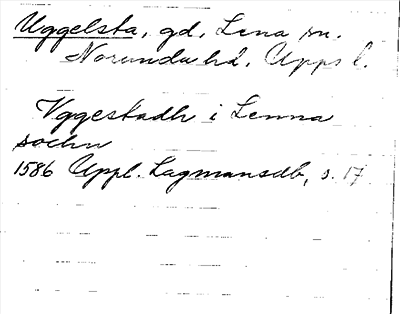 Uggelsta, gd, Lena sn.
Norunda hd. Upps l.
Vggestadh i Lenna
sochn
1586 Uppl. Lagmansdb, s. 17